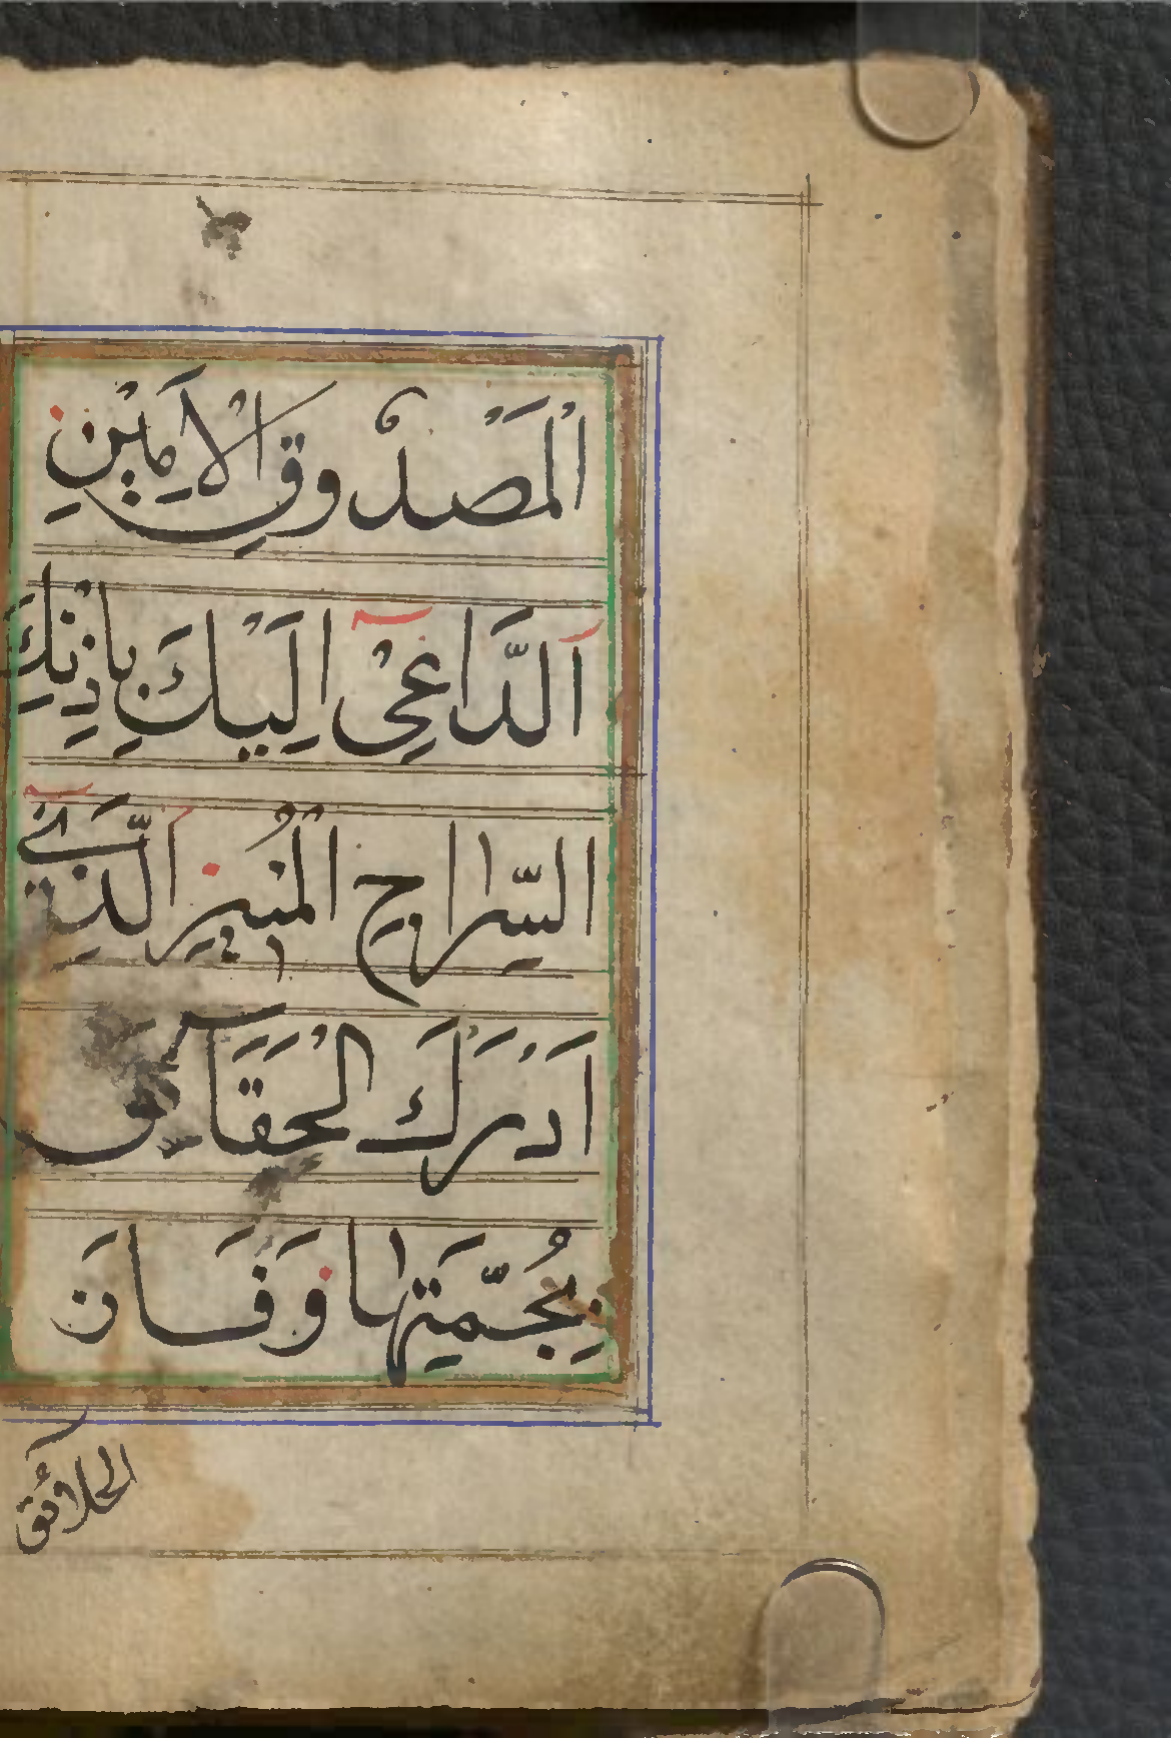 اَلْمَصْدُوقِ الْاَمِيْنِ
اَلدَّاعِيْ اِلَيْكَ بِاِذْنِكَ
السِّرَاجِ الْمُنِيْرِ الَّذِيْ
اَدْرَكَ الْحَقَائِقَ
بِجُمَّتِهَا وَفَانَ
الخلائق